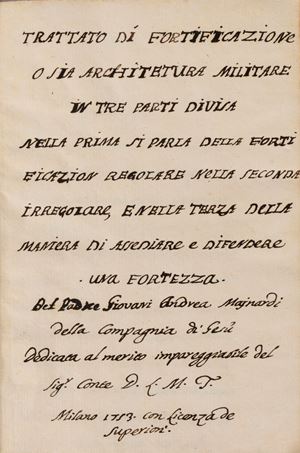 TRATTATO DI FORTIFICAZIONE
O SIA ARCHITETURA MILITARE
IN TRE PARTI DIVISA
NELLA PRIMA SI PARLA DELLA FORTI
FICAZION REGOLARE NELLA SECONDA
IRREGOLARE, E NELLA TERZA DELLA
MANIERA DI ASSEDIARE E DIFENDERE
. UNA FORTEZZA .
Del Padre Giovani Andrea Majnardi
della Compagnia di Gesù
Dedicata al merito impareggiabile del
Sigr. Conte D. L. M. T.
Milano 1753. con Licenza de
Superiori.